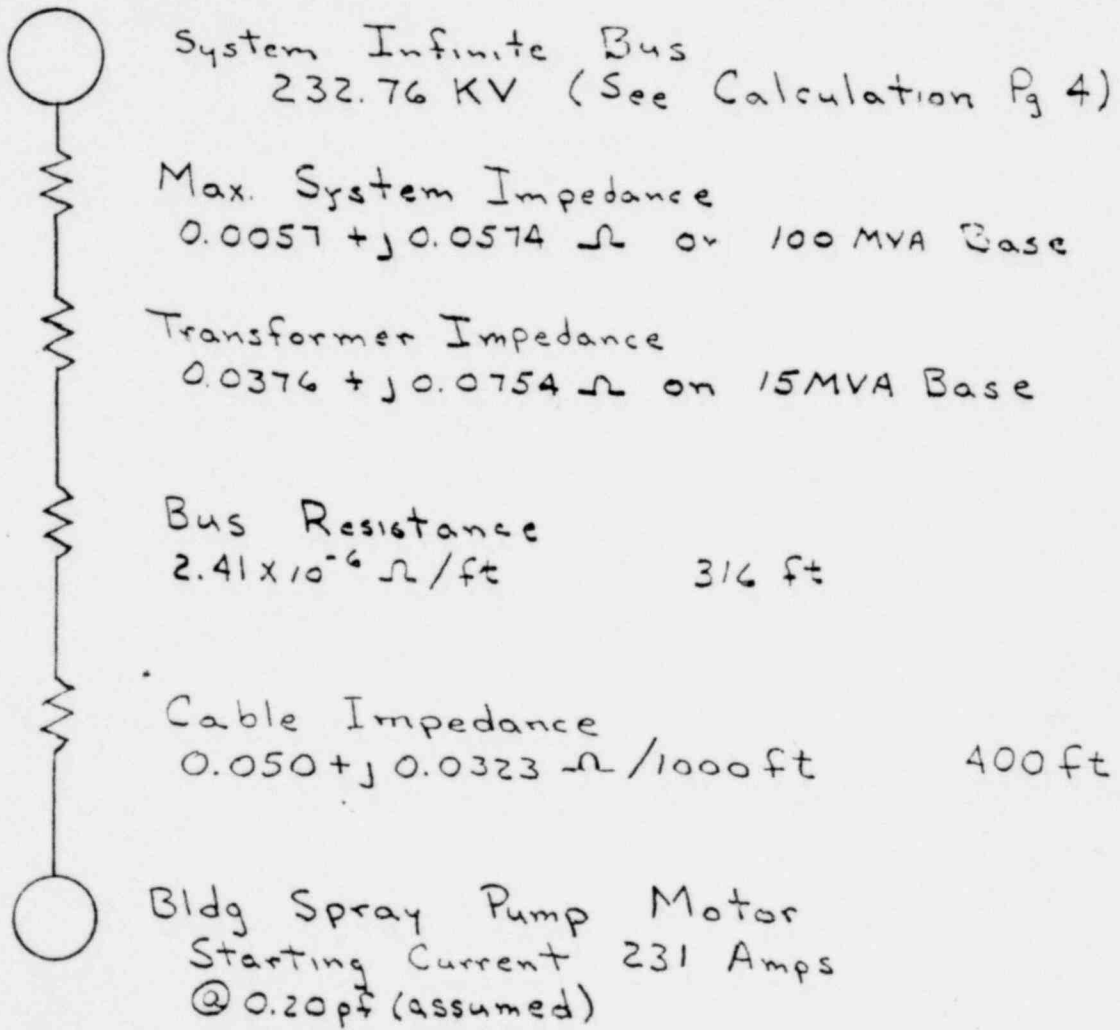 System Infinite Bus
232.76 KV (See Calculation Pg 4)
Max. System Impedance
0.0057 + j 0.0574 Ω or 100 MVA Base
Transformer Impedance
0.0376 + j 0.0754 Ω on 15MVA Base
Bus Resistance
2.41 x 10⁻⁶ Ω/ft 316 ft
Cable Impedance
0.050 + j 0.0323 Ω/1000ft 400 ft
Bldg Spray Pump Motor
Starting Current 231 Amps
@ 0.20 pf (assumed)